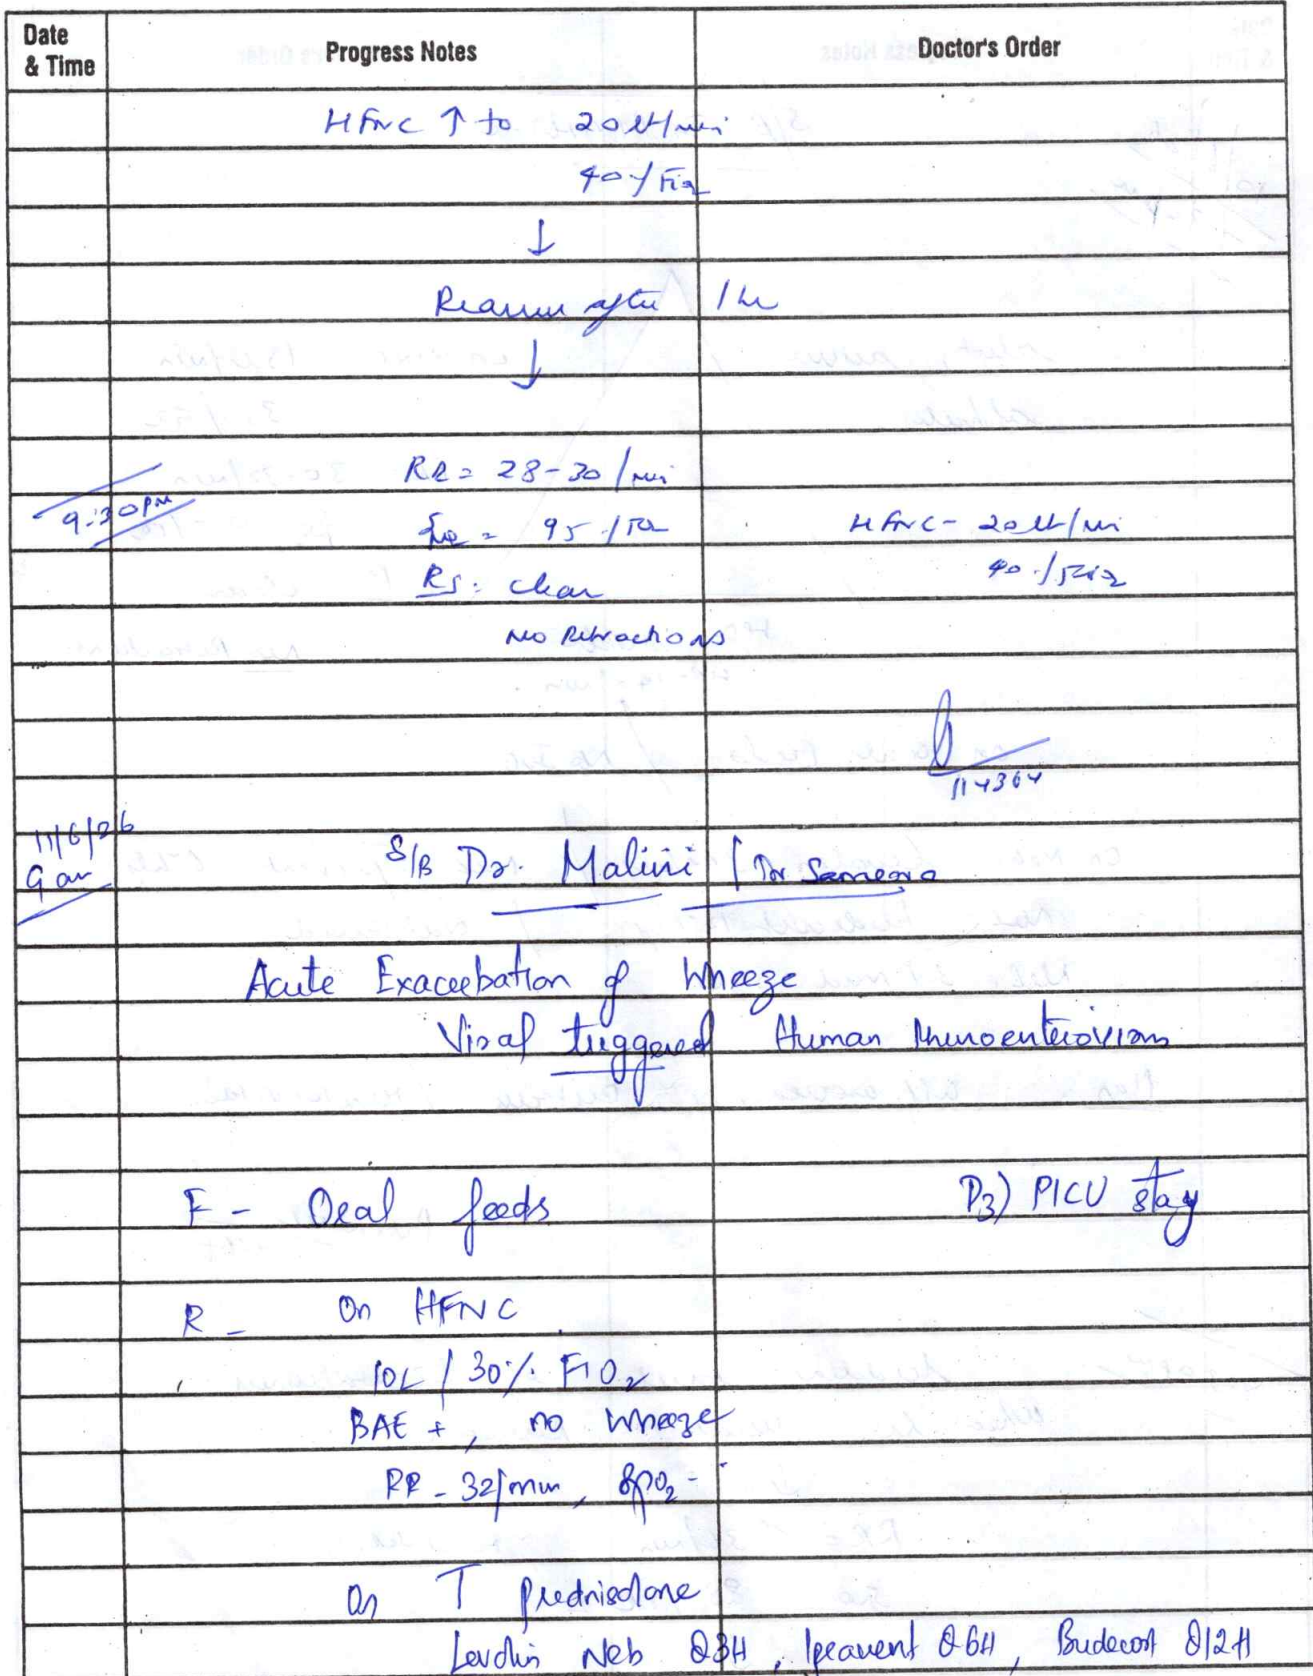 Date & Time Progress Notes Doctor's Order
HFNC ↑ to 20lt/min
40% FiO2
↓
Reassess after 1 hr
↓
9:30pm RR = 28-30/min
95% HFNC - 20lt/min
RS: clear 40% FiO2
No Retractions
114364
11/6/26
9 am S/B Dr. Malini / Dr Sameera
Acute Exacerbation of Wheeze
Viral triggered Human Rhinoenterovirus
F - Oral feeds D3) PICU stay
R - On HFNC
10L / 30% FIO2
BAE +, no wheeze
RR - 32/min, SpO2 -
On T prednisolone
Levolin Neb Q3H, Ipravent Q6H, Budecort Q12H